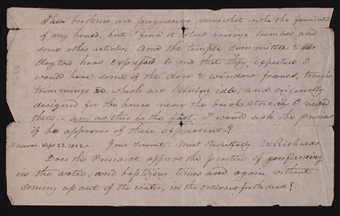 The brethren are progressing somewhat with the foundation
of my house, but I find it slow raising lumber and
some other articles, and the temple committee &
Clayton have expressed to me that they expected I
would have some of the door & window frames,
trimmings &c, which are laying idle, and originally
designed for the house near the brick store, if I need
them. - and as this is the fact, I would ask the president
if he approves of their expressions?
Nauvoo, Sept 22. 1842. Your Servant most Respectfully W. Richards
Does the President approve the practice of confirming
in the water, and baptizing times and again without
coming up out of the water, in the ordinance for the dead?